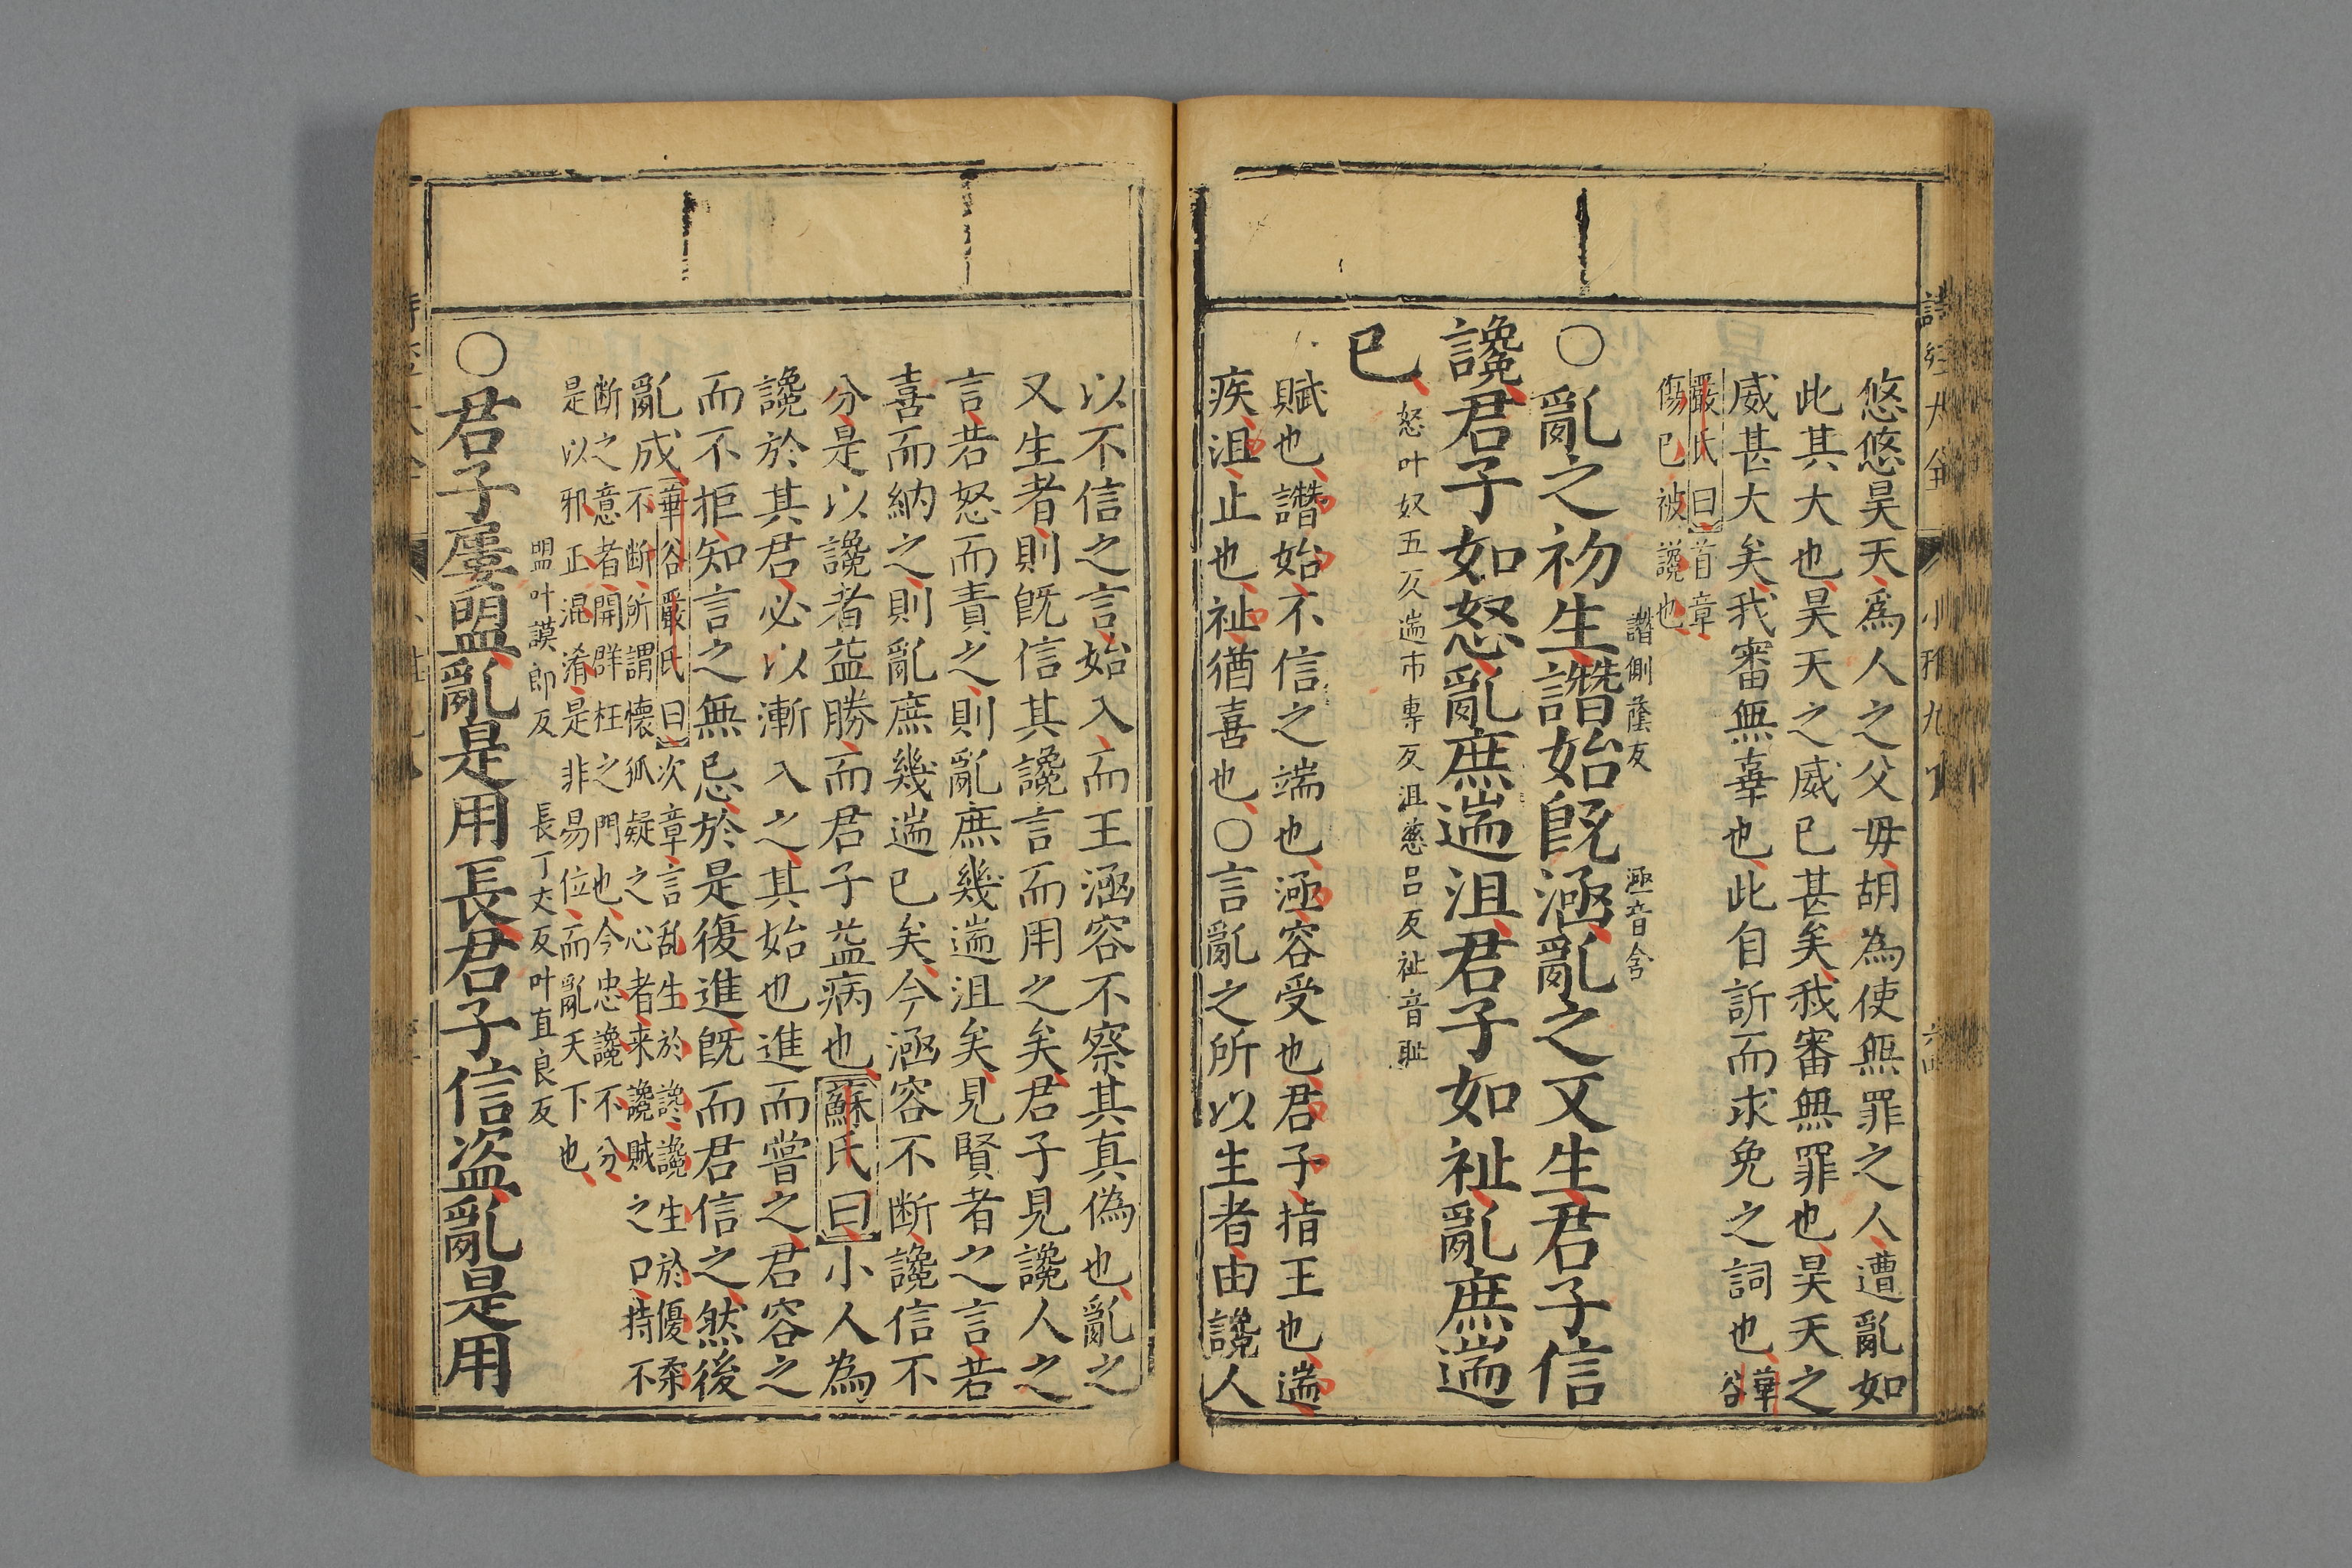 悠悠昊天爲人之父毋胡為使無罪之人遭亂如
此其大也昊天之威已甚矣我審無罪也昊天之
威甚大矣我審無辜也此自訴而求免之詞也華谷
嚴氏曰首章
傷已被讒也
譖側蔭友 涵音含
○亂之初生譖始旣涵亂之又生君子信
讒君子如怒亂庶遄沮君子如祉亂庶遄
怒叶奴五反遄市專反沮慈呂反祉音耻
已
賦也譖始不信之端也涵容受也君子指王也遄
疾沮止也祉猶喜也○言亂之所以生者由讒人
以不信之言始入而王涵容不察其真偽也亂之
又生者則旣信其讒言而用之矣君子見讒人之
言若怒而責之則亂庶幾遄沮矣見賢者之言若
喜而納之則亂庶幾遄已矣今涵容不断讒信不
分是以讒者益勝而君子益病也蘇氏曰小人為
讒於其君必以漸入之其始也進而嘗之君容之
而不拒知言之無忌於是復進旣而君信之然後
亂成華谷嚴氏曰次章言乱生於讒讒生於優柔
不断所謂懐狐疑之心者来讒賊之口持不
断之意者開群枉之門也今忠讒不分
是以邪正混淆是非易位而亂天下也
盟叶謨郎反 長丁丈反叶直良反
○君子屢盟亂是用長君子信盗亂是用